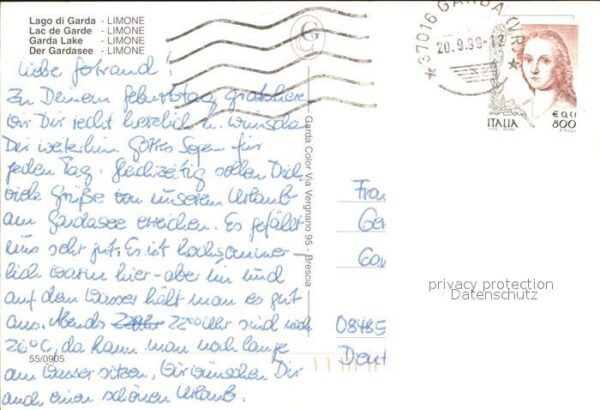 Lago di Garda - LIMONE
Lac de Garde - LIMONE
Garda Lake - LIMONE
Der Gardasee - LIMONE
Liebe
Zu Deinem Geburtstag gratulieren
wir Dir recht herzlich u. wünschen
Dir weiterhin Gottes Segen für
jeden Tag. Gleichzeitig sollen Dich
viele Grüße von unserem Urlaub
am Gardasee erreichen. Es gefällt
uns sehr gut. Es ist hochsommer-
lich warm hier - aber im und
auf dem Wasser hält man es gut
aus. Abends 22°° Uhr sind noch
26°C, da kann man noch lange
am Wasser sitzen. Wir wünschen Dir
auch einen schönen Urlaub.
55/0905
Garda Color Via Vergnano 95 - Brescia
37016 GARDA (VR)
20.9.99-12
ITALIA
€ 0,41
800
Frau
08485
Deut
privacy protection
Datenschutz